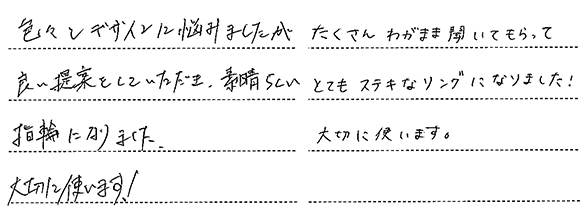 色々とデザインに悩みましたが
良い提案をしていただき、素晴らしい
指輪になりました。
大切に使います!
たくさん わがまま聞いてもらって
とても ステキなリングになりました!
大切に使います。